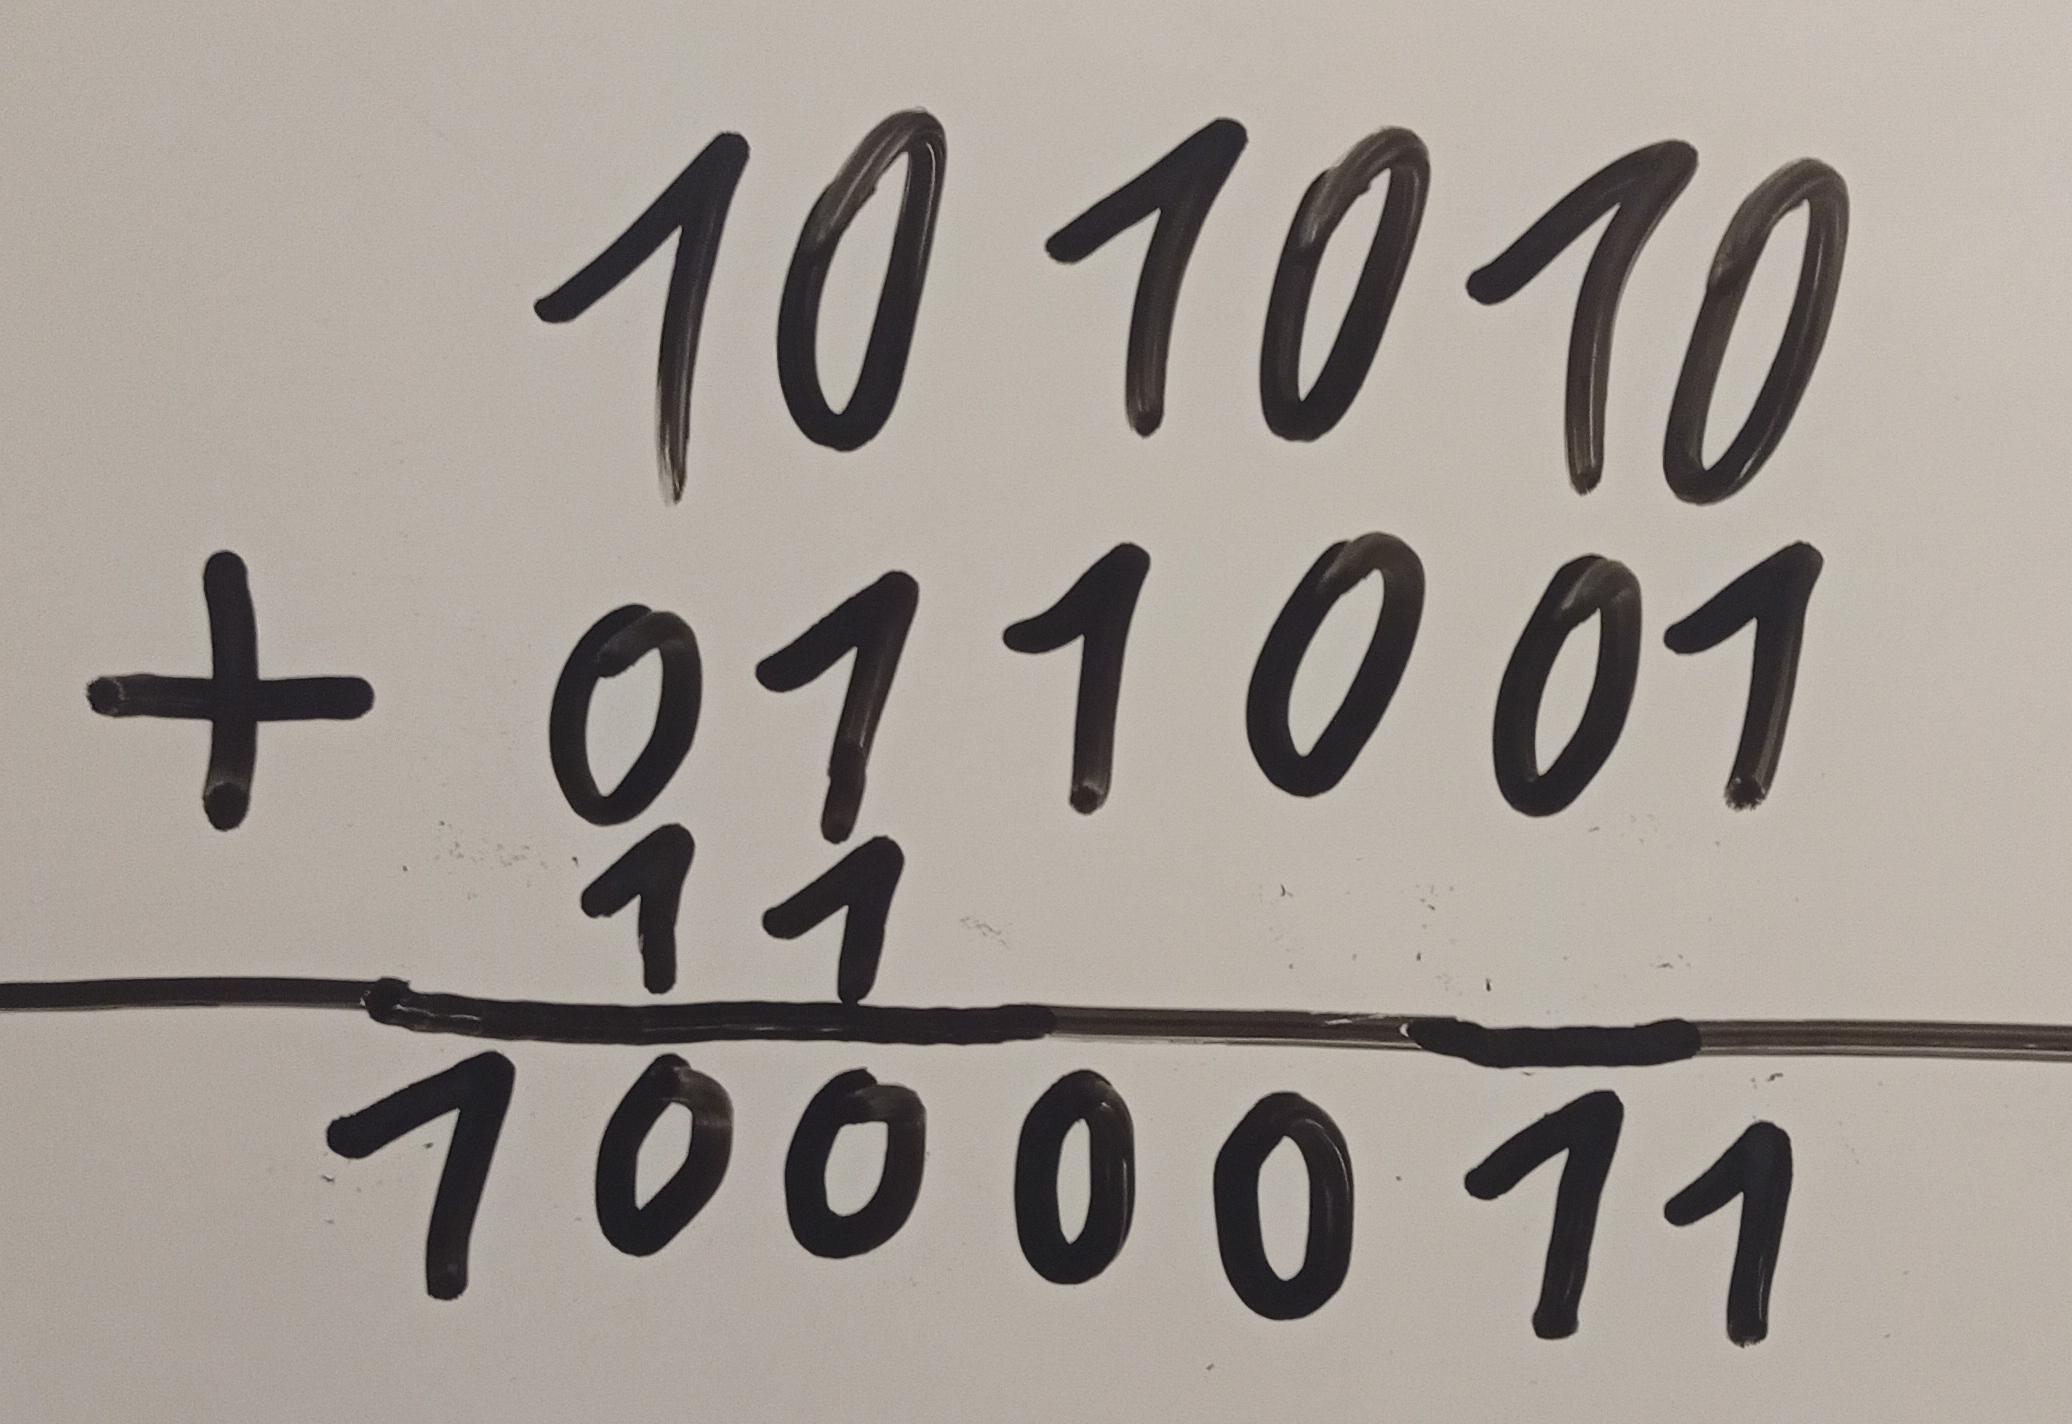 101010
+ 011001
11
1000011